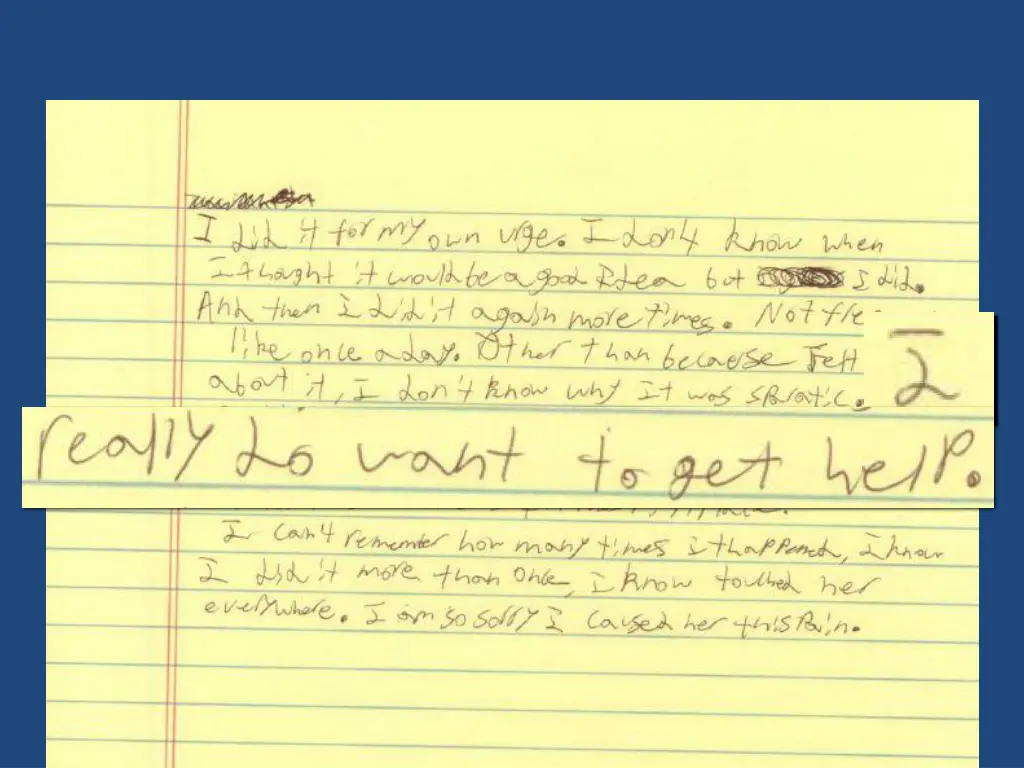 I did it for my own urge. I don4 know when
I thought it would be a good Idea but I did.
And then I did it again more times. Not
like once a day. Other than because I felt
about it, I don't know why It was sporatic.
I
really do want to get help.
I can4 remember how many times it happened, I know
I did it more than once, I know touched her
everywhere. I am so sorry I caused her this Pain.